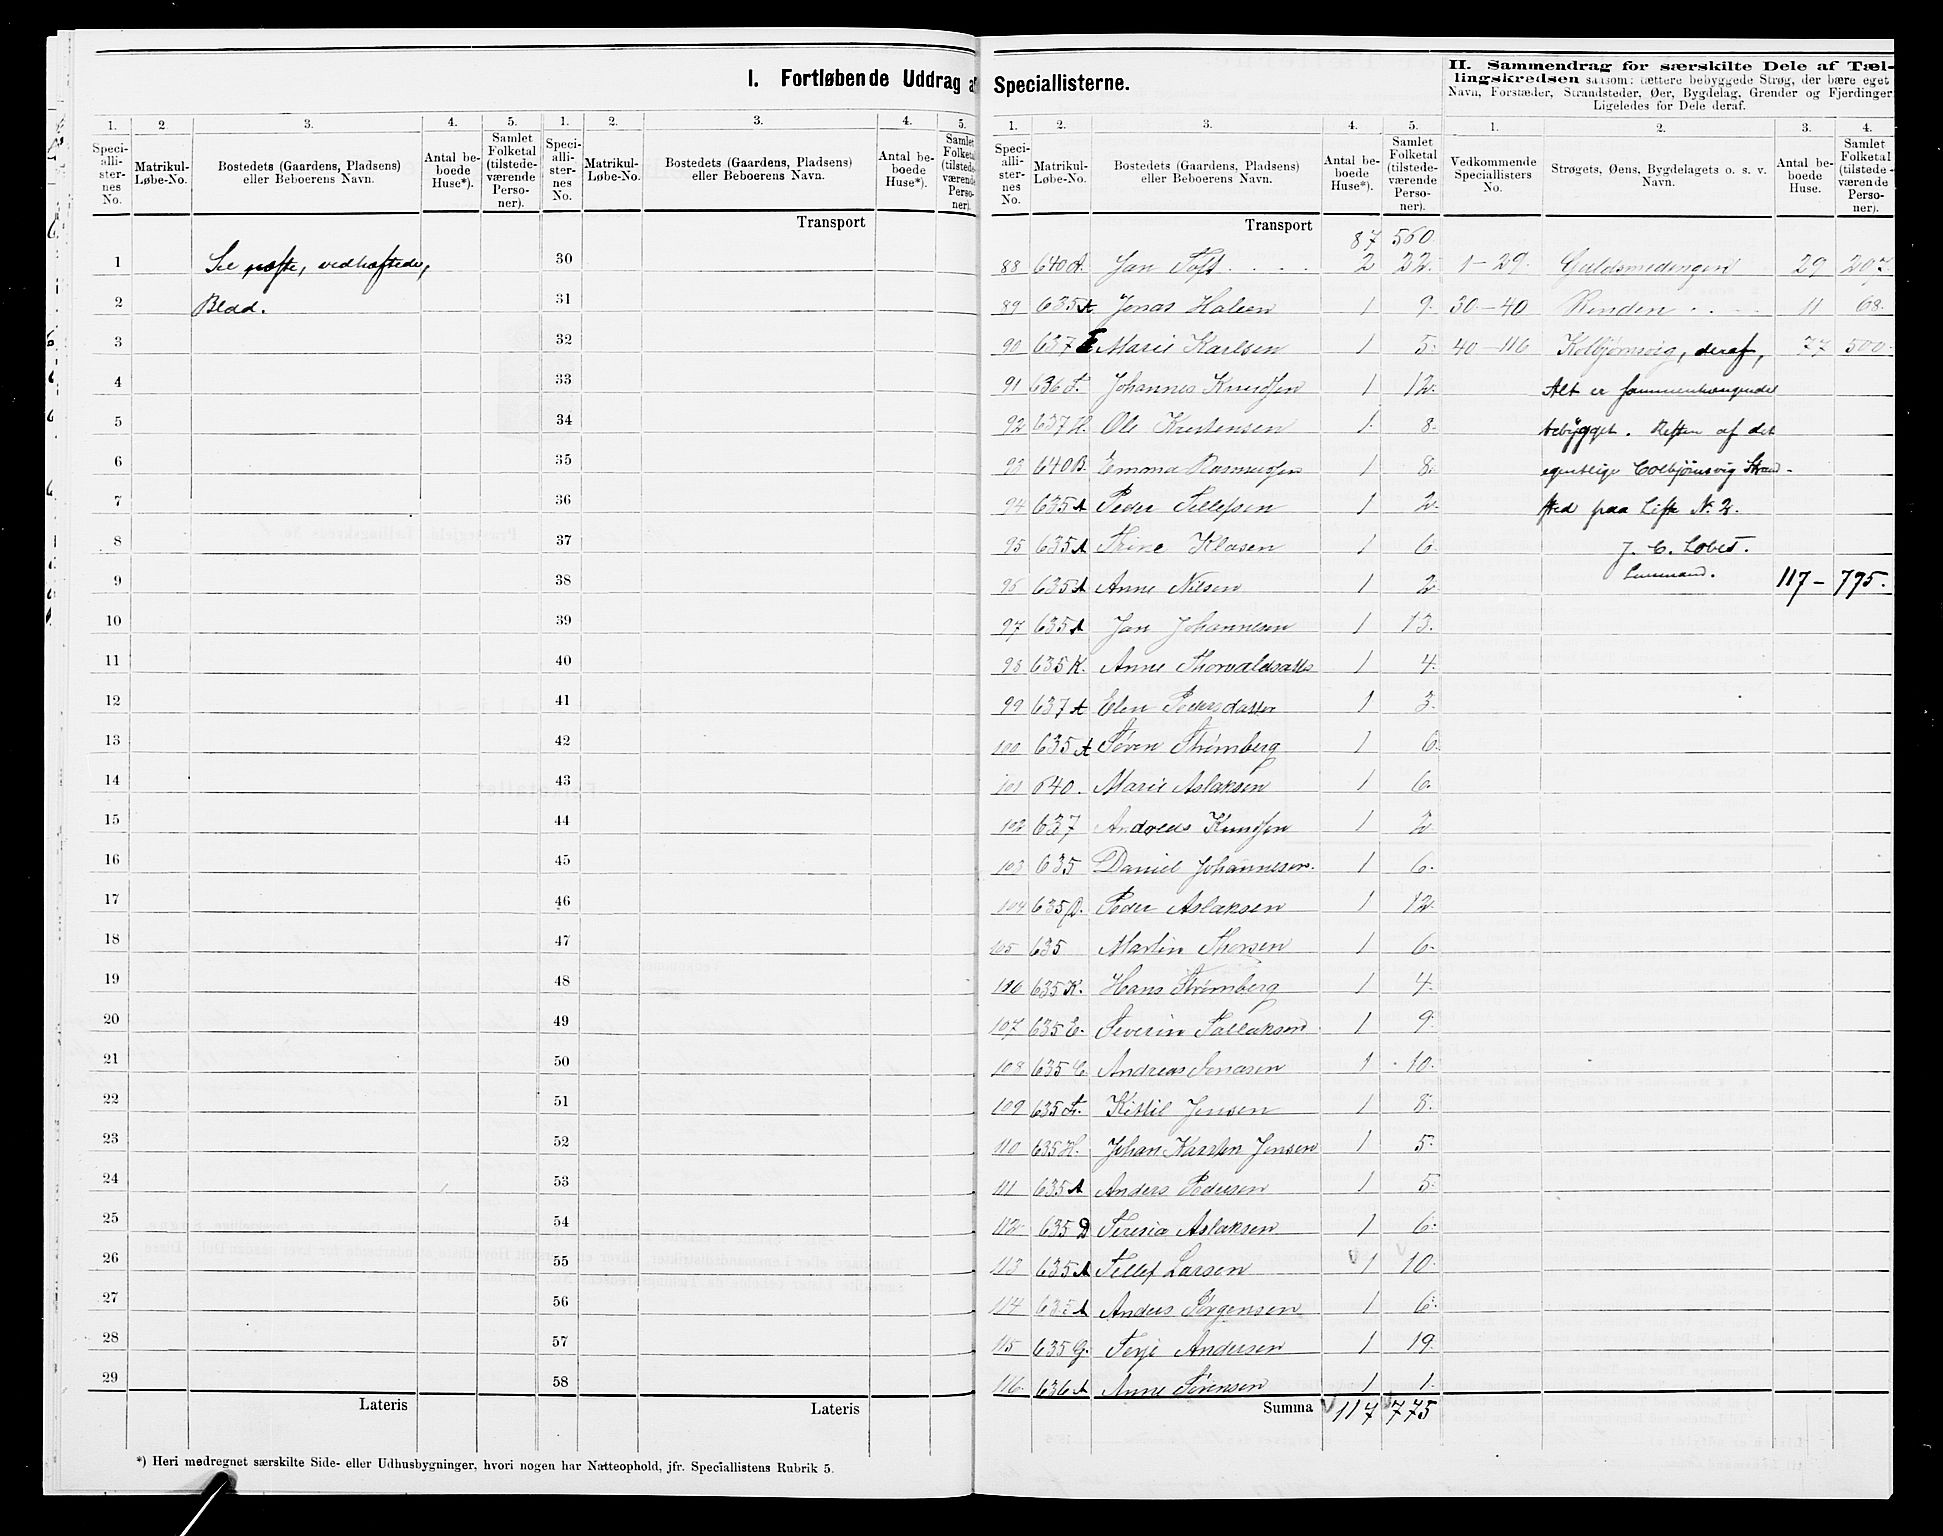 I. Fortløbende Uddrag af Speciallisterne.
II. Sammendrag for særskilte Dele af Tæl-
lingskredsen saasom: tættere bebyggede Strøg, der bære eget
Navn, Forstæder, Strandsteder, Øer, Bygdelag, Grender og Fjerdinger
Ligeledes for Dele deraf.
1. 2 3. 4. 5. 1. 2. 3. 4. 5.
Speciallisternes No. Matrikul-Løbe-No. Bostedets (Gaardens, Pladsens) eller Beboerens Navn. Antal beboede Huse*). Samlet Folketal (tilstedeværende Personer).
Speciallisternes No. Matrikul-Løbe-No. Bostedets (Gaardens, Pladsens) eller Beboerens Navn. Antal beboede Huse*). Samlet Folketal (tilstedeværende Personer).
Transport
1 See næste, vedhæftede, 30
2 Blad. 31
3 32
4 33
5 34
6 35
7 36
8 37
9 38
10 39
11 40
12 41
13 42
14 43
15 44
16 45
17 46
18 47
19 48
20 49
21 50
22 51
23 52
24 53
25 54
26 55
27 56
28 57
29 58
Lateris Lateris
*) Heri medregnet særskilte Side- eller Udhusbygninger, hvori nogen har Natteophold, jfr. Speciallistens Rubrik 5.
1. 2. 3. 4. 5. 1. 2. 3. 4.
Speciallisternes No. Matrikul-Løbe-No. Bostedets (Gaardens, Pladsens) eller Beboerens Navn. Antal beboede Huse*). Samlet Folketal (tilstedeværende Personer).
Vedkommende Speciallisters No. Strøgets, Øens, Bygdelagets o. s. v. Navn. Antal beboede Huse. Samlet Folketal (tilstedeværende Personer).
Transport 87 560.
88 640 A. Jan Toft . . . . 2 22. 1-29. Guldsmedengen 29 207.
89 635 A Jonas Halsen 1 9. 30-40 Renden . . . . 11 68.
90 637 E Marie Karlsen 1 5. 40-116 Kolbjørnsvig, deraf, 77 500.
91 636 F. Johannes Knudsen 1 12. Alt er sammenhængende
92 637 H. Ole Kristensen 1. 8. bebygget. Resten af det
93 640 B. Emma Rasmussen 1 8. egentlige Colbjørnsvig Strand-
94 635 A Peder Tellefsen 1 2. sted paa Liste N. 2.
95 635 A Trine Klasen 1 6. J. C. Lobes.
95 635 A Anne Nilsen 1 2 Lensmand. 117 - 795.
97 635 A Jan Johannesen 1 13.
98 635 K. Anne Thorvaldsatt 1 4.
99 637 A Elen Pedersdatter 1 3.
100 635 A Søren Strömberg 1 6.
101 640. Marie Aslaksen 1 6.
102 637 Andreas Knudsen 1 2
103 635 Daniel Johannesen. 1 6.
104 635 D. Peder Aslaksen 1 12.
105 635 Martin Thorsen 1 6.
106 635 K. Hans Strömberg 1 4.
107 635 C. Severin Tallaksen 1 9.
108 635 C. Andreas Jonasen 1 10.
109 635 F. Kittil Jensen 1 8.
110 635 H. Johan Karsten Jensen 1 5.
111 635 A Anders Pedersen 1 5.
112 635 D Teresia Aslaksen 1 6.
113 635 A Tellef Larsen 1 10.
114 635 A Anders Jörgensen 1 6.
115 635 G. Terje Andersen 1 19.
116. 636 A Anne Sørensen 1 1.
Summa 117 775